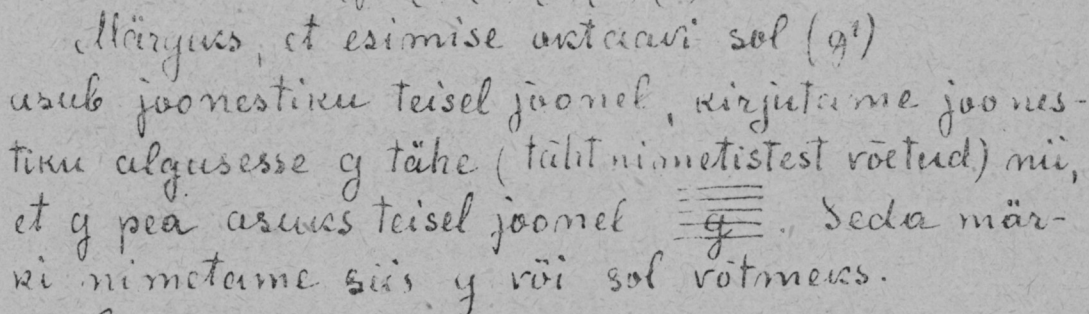 Märguks, et esimise oktaavi sol (g¹)
asub joonestiku teisel joonel, kirjutame joones-
tiku algusesse g tähe (täht nimetistest võetud) nii,
et g pea asuks teisel joonel g. Seda mär-
ki nimetame siis g või sol võtmeks.